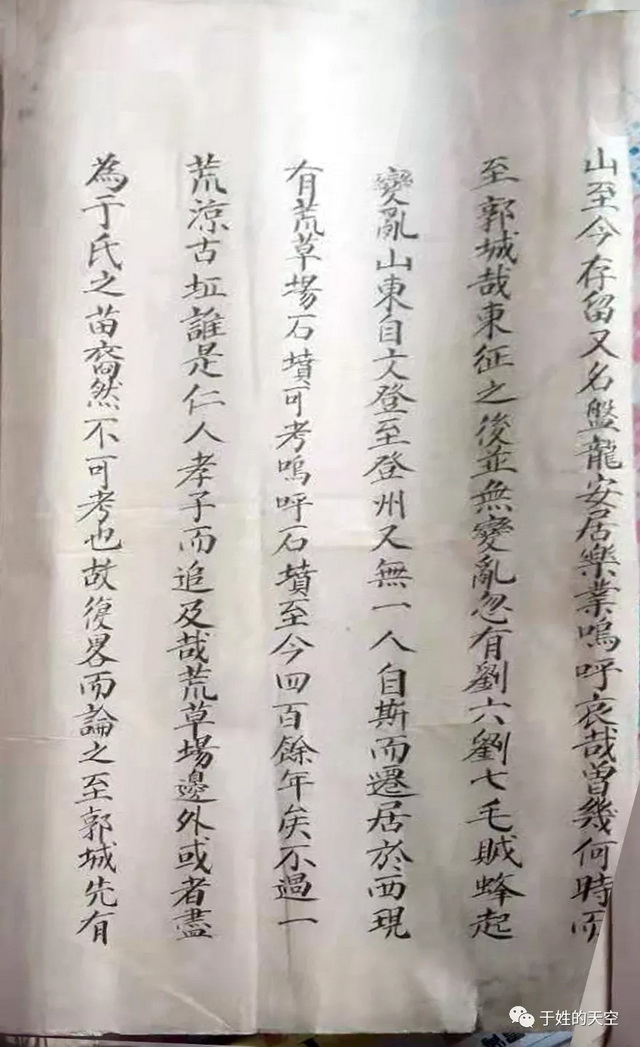 山至今存留又名盤龍安居樂業嗚呼哀哉曾幾何時而
至郭城哉東征之後並無變亂忽有劉六劉七毛賊蜂起
變亂山東自文登至登州又無一人自斯而遷居於西現
有荒草場石墳可考嗚呼石墳至今四百餘年矣不過一
荒涼古址誰是仁人孝子而追及哉荒草場邊外或者盡
為于氏之苗裔然不可考也故復畧而論之至郭城先有
于姓的天空